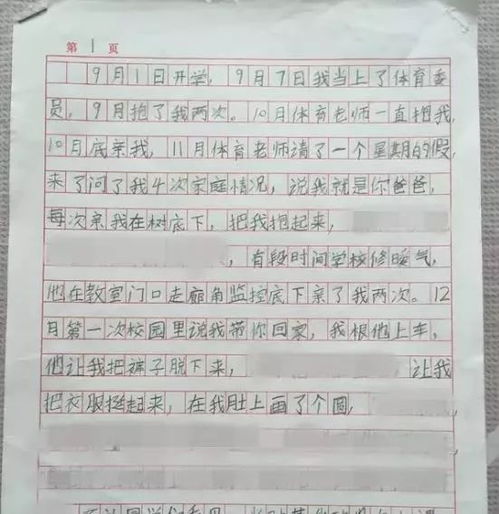 第1页
9月1日开学，9月7日我当上了体育委
员，9月抱了我两次。10月体育老师一直抱我，
10月底亲我，11月体育老师请了一个星期的假，
来了问了我4次家庭情况，说我就是你爸爸，
每次亲我在树底下，把我抱起来，
，有段时间学校修暖气，
他在教室门口走廊角监控底下亲了我两次。12
月第一次校园里说我带你回家，我根他上车，
他让我把裤子脱下来， 让我
把衣服挺起来，在我肚上画了个圆，